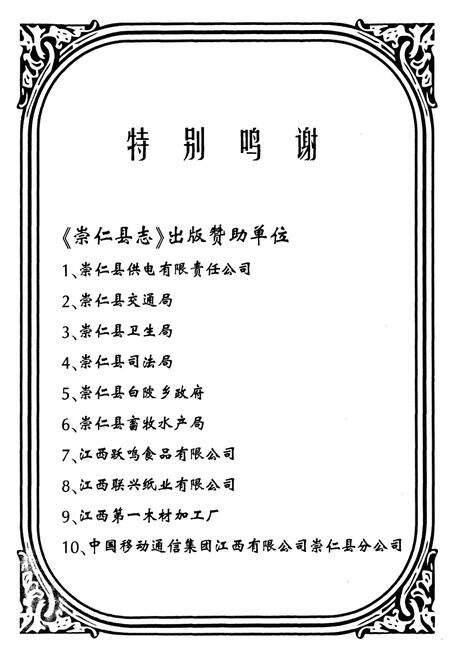 特别鸣谢
《崇仁县志》出版赞助单位
1、崇仁县供电有限责任公司
2、崇仁县交通局
3、崇仁县卫生局
4、崇仁县司法局
5、崇仁县白陂乡政府
6、崇仁县畜牧水产局
7、江西跃鸣食品有限公司
8、江西联兴纸业有限公司
9、江西第一木材加工厂
10、中国移动通信集团江西有限公司崇仁县分公司